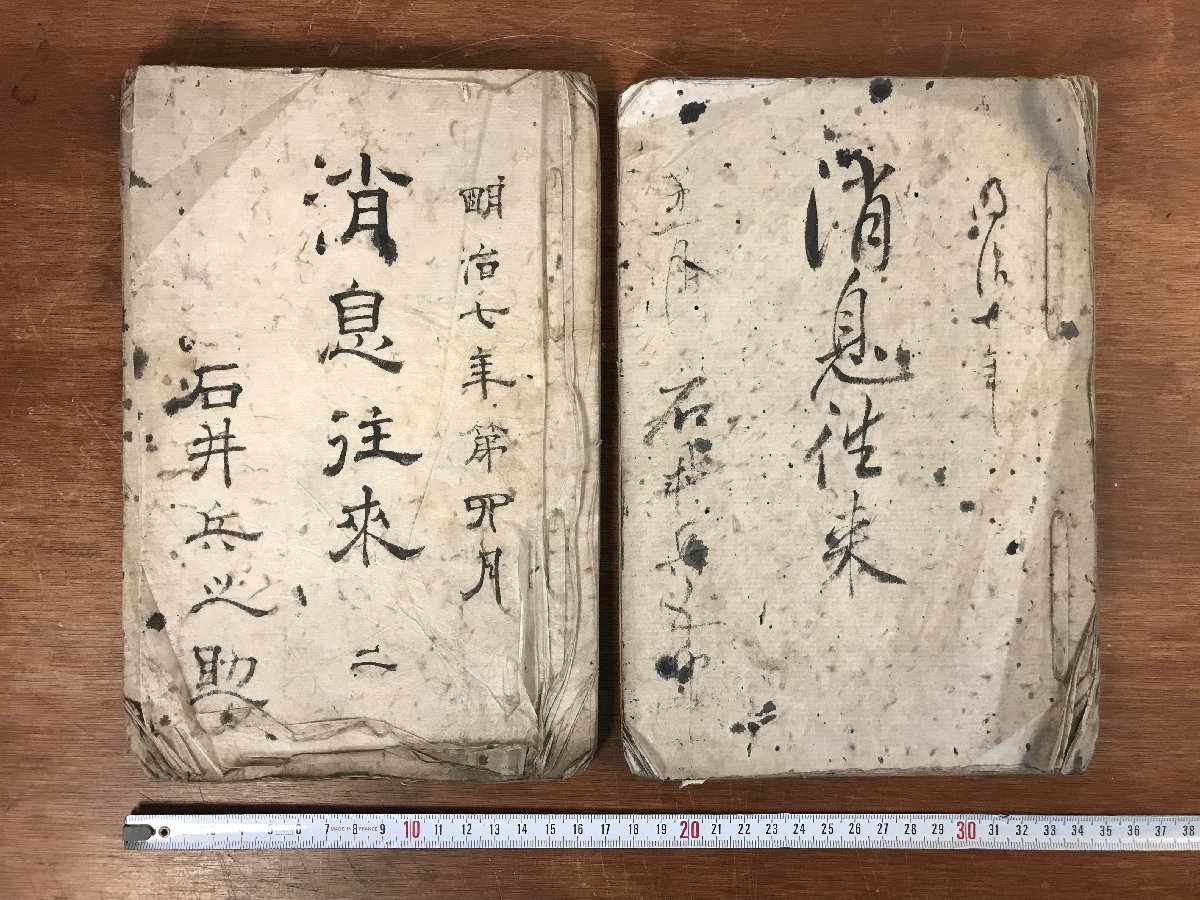 明治七年第四月
消息往來 二
石井兵之助
明治十年
消息往来
石井兵之助
MADE IN FRANCE
6 7 8 9 10 11 12 13 14 15 16 17 18 19 20 21 22 23 24 25 26 27 28 29 30 31 32 33 34 35 36 37 38